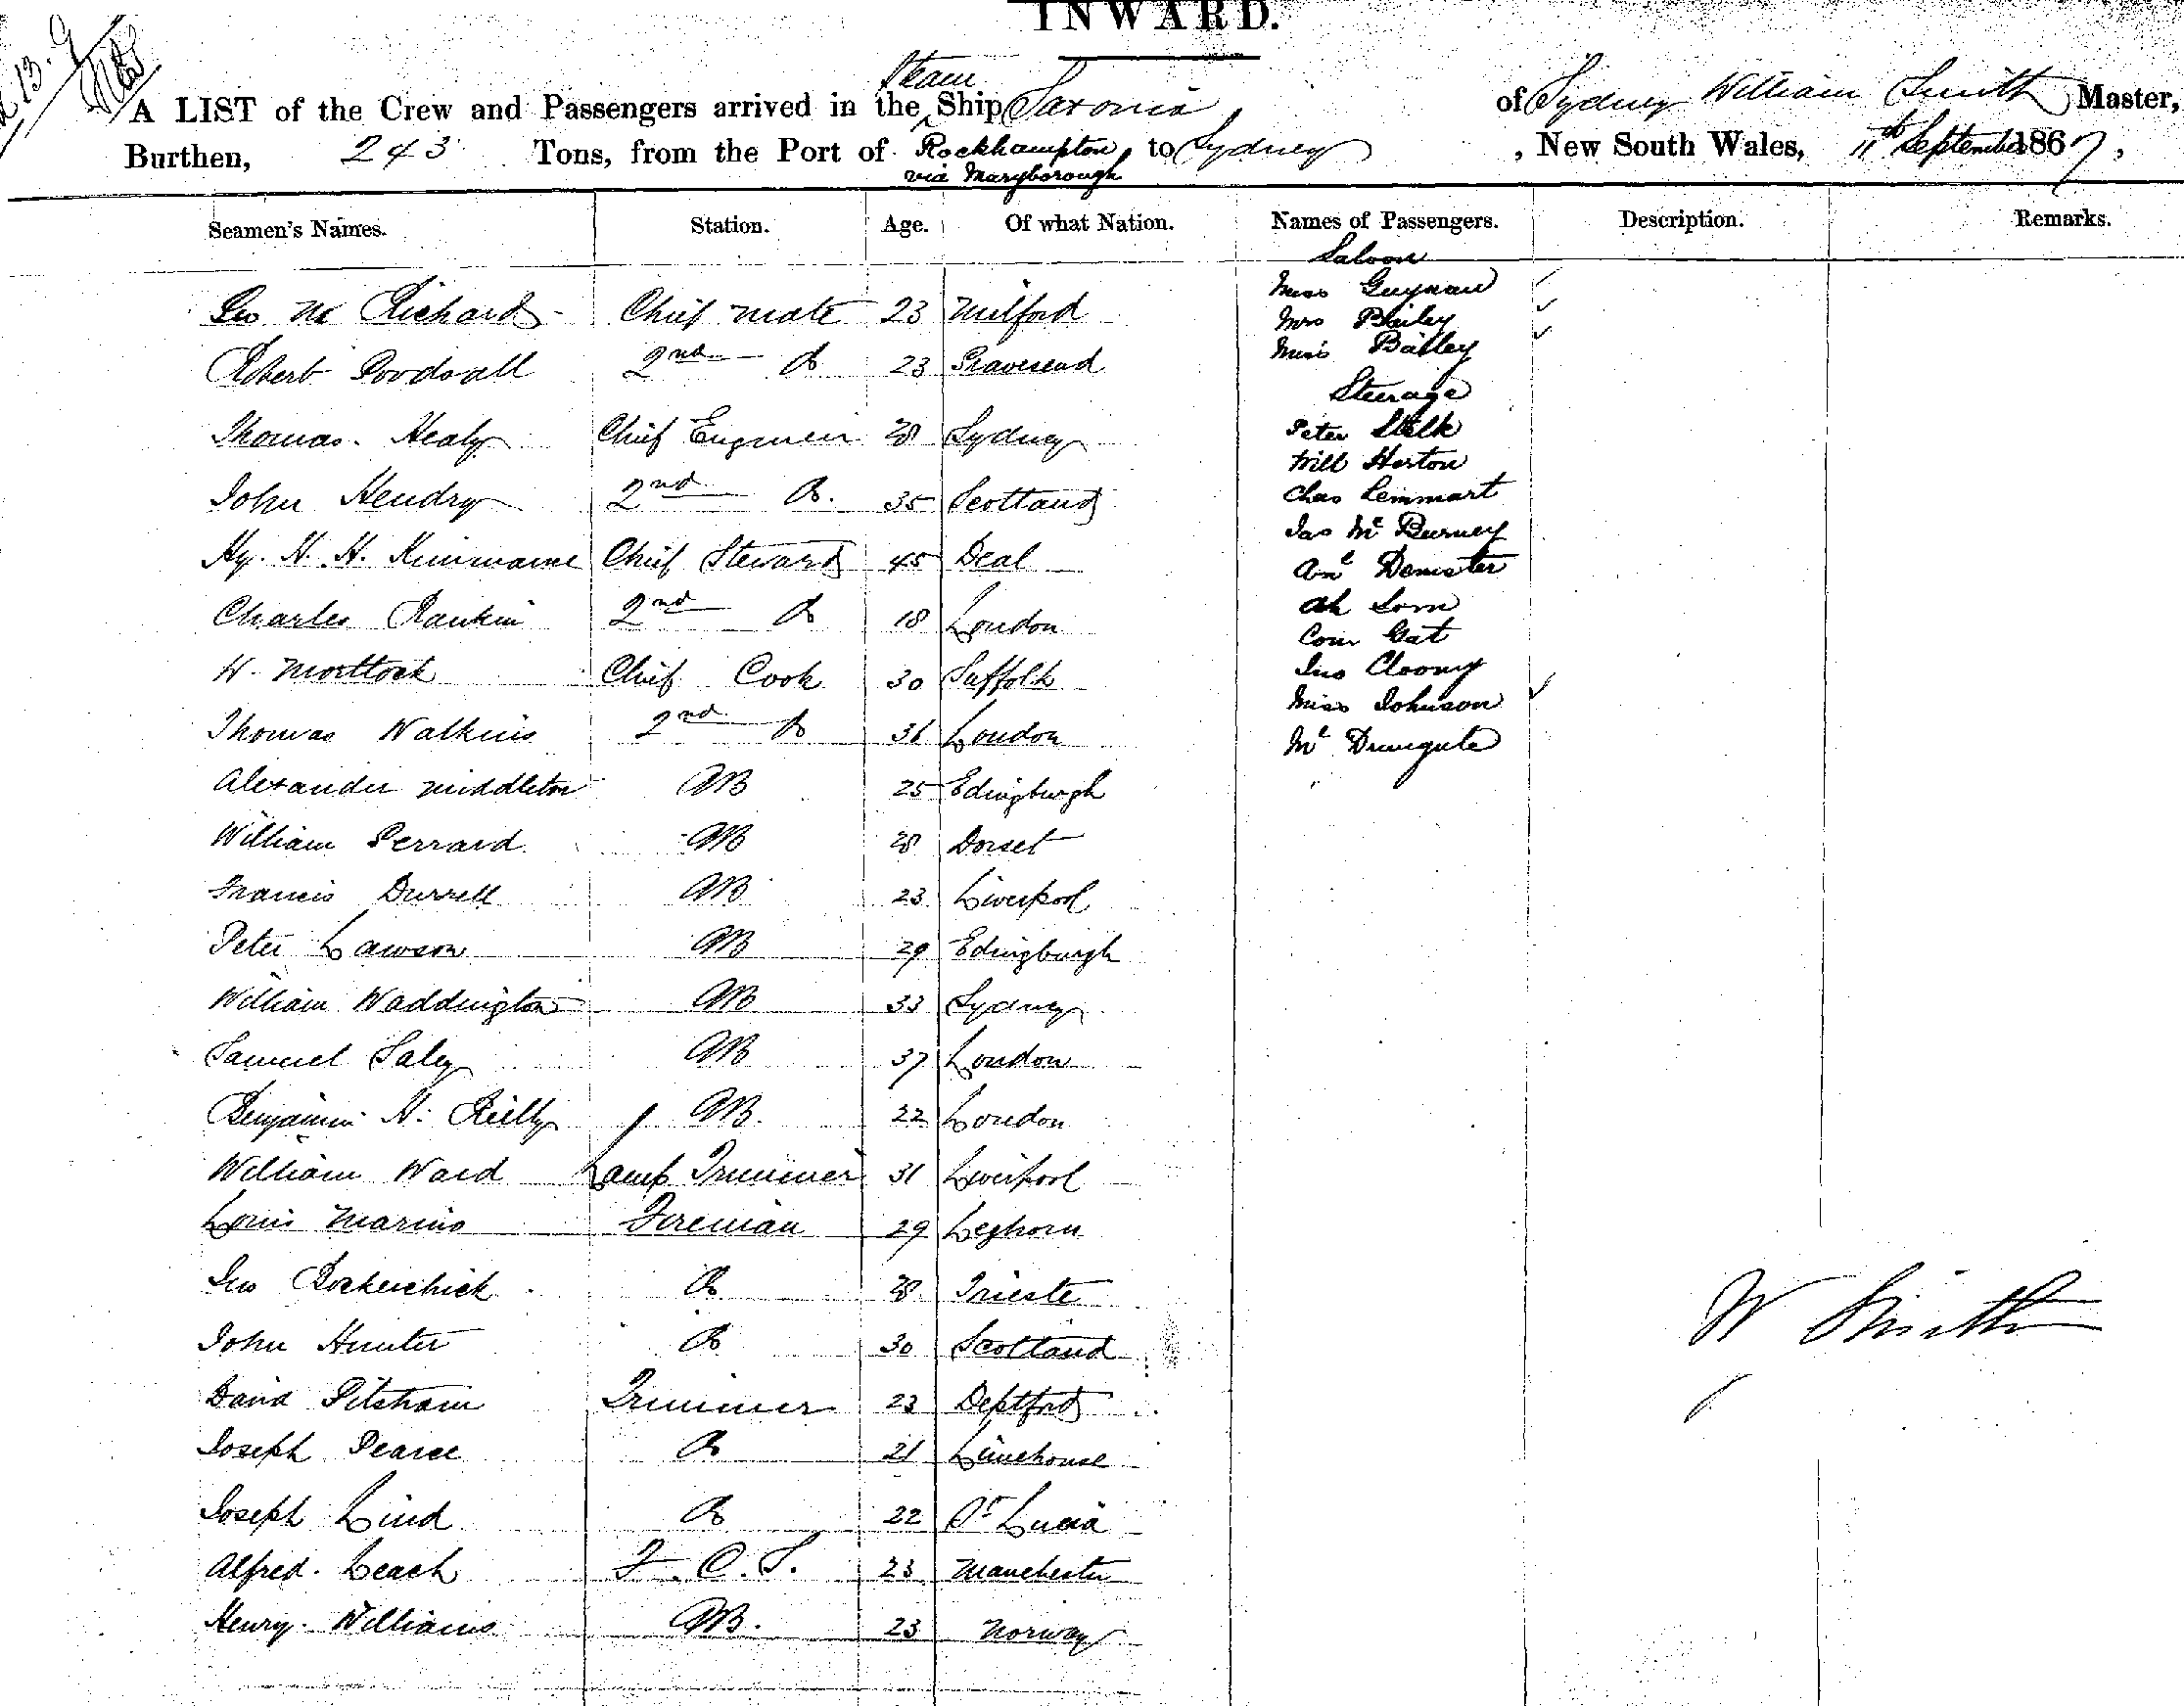 INWARD.
A LIST of the Crew and Passengers arrived in the Steam Ship Saxonia of Sydney William Smith Master,
Burthen, 243 Tons, from the Port of Rockhampton via Maryborough to Sydney, New South Wales, 11th September 1867,
Seamen's Names. Station. Age. Of what Nation. Names of Passengers. Description. Remarks.
Geo Mc Richards Chief Mate 23 Milford
Robert 2nd Do 23 Gravesend
Thomas Healy Chief Engineer 28 Sydney
John Hendry 2nd Do. 35 Scotland
Hy. H. H. Chief Steward 45 Deal
Charles Rankin 2nd Do 18 London
W. Mortlock Chief Cook 30 Suffolk
Thomas Watkins 2nd Do 31 London
Alexander Middleton AB 25 Edingburgh
William Perrard AB 28 Dorset
Francis Durrell AB 23 Liverpool
Peter Lawson AB 29 Edingburgh
William Waddington AB 33 Sydney
Samuel Saley AB 37 London
Benjamin H. Reilly AB. 22 London
William Ward Lamp Trimmer 31 Liverpool
Louis Marino Fireman 29 Leghorn
Jno Do 28 Trieste
John Hunter Do 30 Scotland
David Pitsham Trimmer 23 Deptford
Joseph Pearce Do 21 Limehouse
Joseph Lind Do 22 St Lucia
Alfred. Leach F. C. S. 23 Manchester
Henry. Williams AB. 23 Norway
Saloon
Miss Guynan
Mrs Bailey
Miss Bailey
Steerage
Peter Stelk
Will Horton
Chas Lemmart
Jas Mc Burney
Demster
Ah Lorn
Com Gat
Jno Cloony
Miss Johnson
W Smith